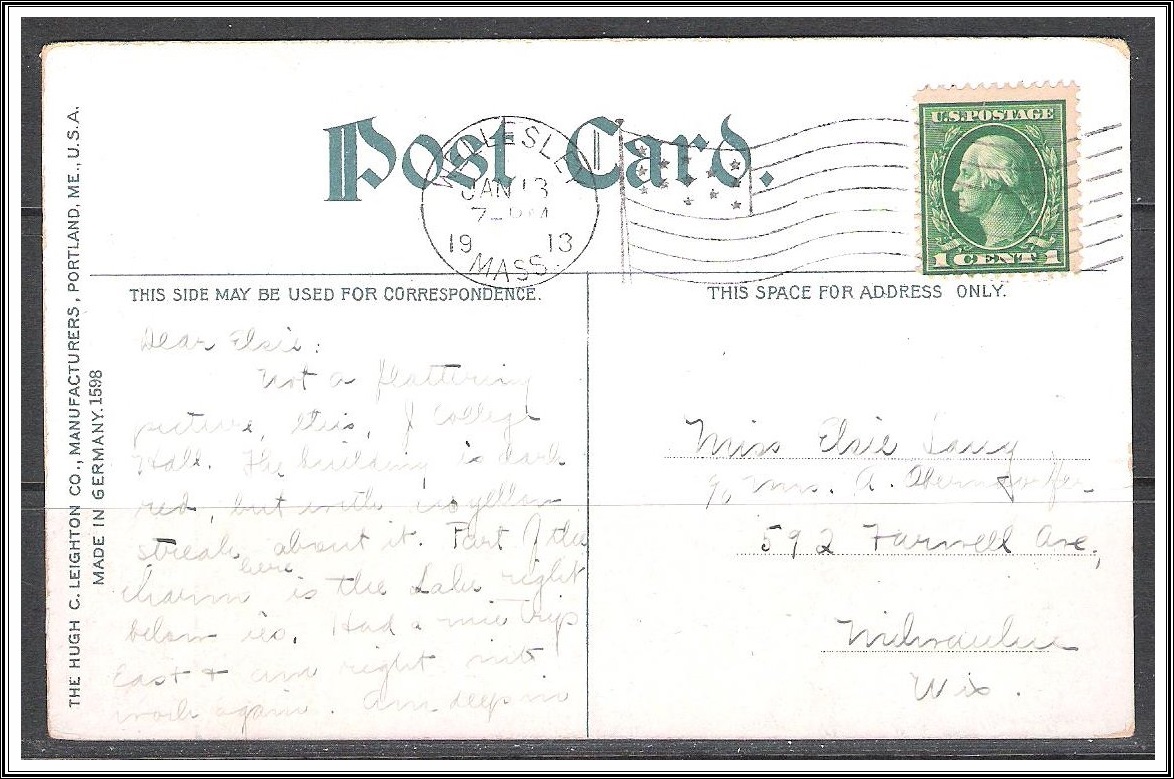 THE HUGH C. LEIGHTON CO., MANUFACTURERS, PORTLAND, ME., U.S.A.
MADE IN GERMANY. 1598
Post Card.
WELLESLEY
JAN 13
7-PM
1913
MASS.
U.S. POSTAGE
1 CENT 1
THIS SIDE MAY BE USED FOR CORRESPONDENCE.
Dear Elsie:
Not a flattering
picture, this, of College
Hall. The building is dark
red, but with no yellow
streak about it. Part of the
charm here is the Lake right
below us. Had a nice trip
East + am right into
work again. Am deep in
THIS SPACE FOR ADDRESS ONLY.
Miss Elsie
c/o Mrs. A.
592 Farwell Ave.,
Milwaukee
Wis.